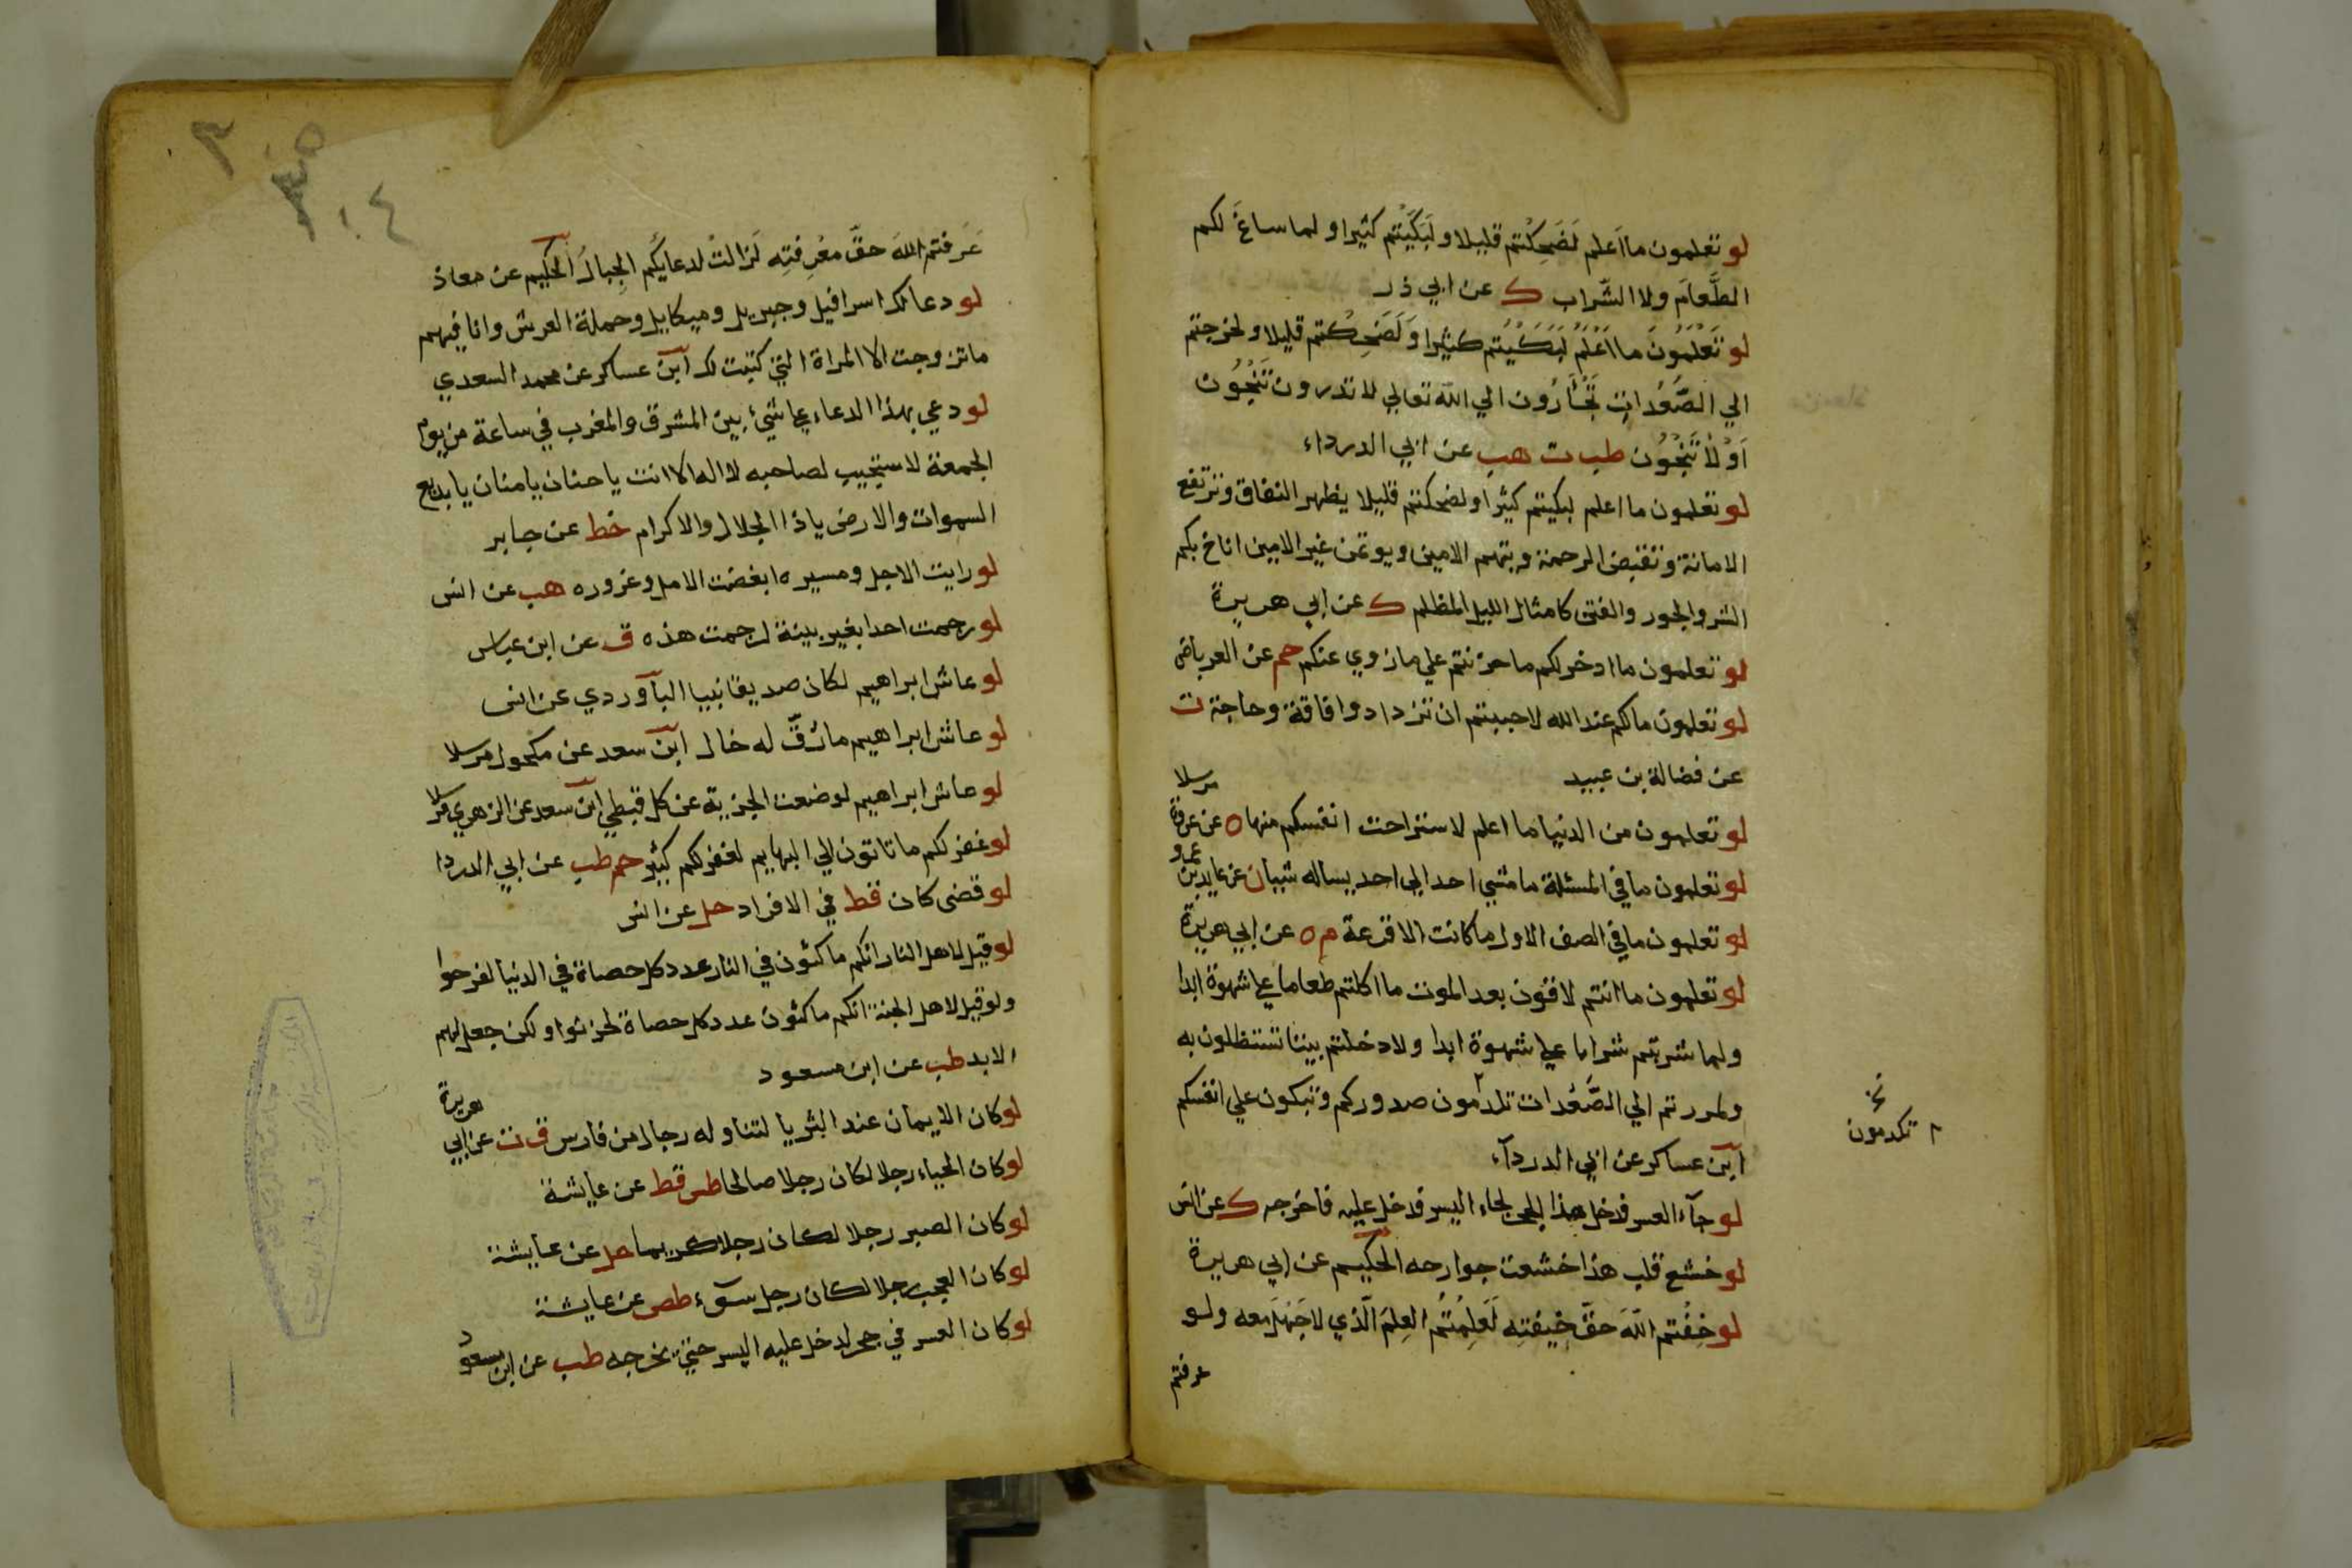 لو تعلمون ما اَعلم لَضَحِكْتم قليلا ولَبَكَيْتم كثيرا ولما ساغَ لكم
الطَّعام ولا الشّراب ك عن ابي ذر
لو تَعْلَمُونَ ما اَعْلَمُ لَبَكَيْتم كثيرا وَلَضَحِكْتم قليلا ولخرجتم
الي الصُّعُدات تَجْأَرُون الي الله تعالي لا تدرون تَنْجُوُن
اَوْ لاْ تَنْجُوُن طب ت هب عن ابي الدرداء
لو تعلمون ما اعلم لبكيتم كثيرا ولضحكتم قليلا يظهر النفاق وترتفع
الامانة وتقبض الرحمة ويتهم الامين ويوتمن غير الامين اناخ بكم
الشر والجور والفتن كامثال الليل المظلم ك عن ابي هريرة
لو تعلمون ما ادخر لكم ما حزنتم علي ما زوي عنكم حم عن العرباض
لو تعلمون ما لكم عند الله لاحببتم ان تزدادوا فاقة وحاجة ت
عن فضالة بن عبيد
لو تعلمون من الدنيا ما اعلم لاستراحت انفسكم منها ه عن عروة مرسلا
لو تعلمون ما في المسئلة ما مشي احد الي احد يساله شيئا ن عن عايذ بن عمرو
لو تعلمون ما في الصف الاول ما كانت الا قرعة م ه عن ابي هريرة
لو تعلمون ما انتم لاقون بعد الموت ما اكلتم طعاما علي شهوة ابدا
ولما شربتم شرابا علي شهوة ابدا ولا دخلتم بيتا تستظلون به
ولمررتم الي الصُّعُدات تلدمون صدوركم وتبكون علي انفسكم
ابن عساكر عن ابي الدردآء
لو جآء العسر فدخل هذا الجحر لجاء اليسر فدخل عليه فاخرجه ك عن انس
لو خشع قلب هذا خشعت جوارحه الحكيم عن ابي هريرة
لو خِفْتم اللهَ حقَّ خِيفتِه لَعَلِمْتُم العِلمَ الّذي لا جَهْلَ معه ولو
عرفتم
تكدمون
عَرفتم اللهَ حقّ معْرِفتِه لَزالتْ لدعايكم الجِبالُ الحكيم عن معاذ
لو دعا لك اسرافيل وجبريل وميكايل وحملة العرش وانا فيهم
ما تزوجت الا المراة التي كتبت لك ابن عساكر عن محمد السعدي
لو دعي بهذا الدعاء علي شيئ بين المشرق والمغرب في ساعة من يوم
الجمعة لاستجيب لصاحبه لا اله الا انت يا حنان يا منان يا بديع
السموات والارض ياذا الجلال والاكرام خط عن جابر
لو رايت الاجل ومسيره ابغضت الامل وغروره هب عن انس
لو رجمت احدا بغير بينة لرجمت هذه ق عن ابن عباس
لو عاش ابراهيم لكان صديقا نبيا الباوردي عن انس
لو عاش ابراهيم ما رَقّ له خال ابن سعد عن مكحول مرسلا
لو عاش ابراهيم لوضعت الجزية عن كل قبطي ابن سعد عن الزهري مرسلا
لو غفر لكم ما تاتون الي البهايم لغفر لكم كثير حم طب عن ابي الدردا
لو قضي كان قط في الافراد حل عن انس
لو قيل لاهل النار انكم ماكثون في النار عدد كل حصاة في الدنيا لفرحوا
ولو قيل لاهل الجنة انكم ماكثون عدد كل حصاة لحزنوا ولكن جعل لهم
الابد طب عن ابن مسعود
لو كان الايمان عند الثريا لتناوله رجال من فارس ق ت عن ابي هريرة
لو كان الحياء رجلا لكان رجلا صالحا طس قط عن عايشة
لو كان الصبر رجلا لكان رجلا كريما حل عن عايشة
لو كان العجب رجلا لكان رجل سوٓء طص عن عايشة
لو كان العسر في جحر لدخل عليه اليسر حتي يخرجه طب عن ابن مسعود